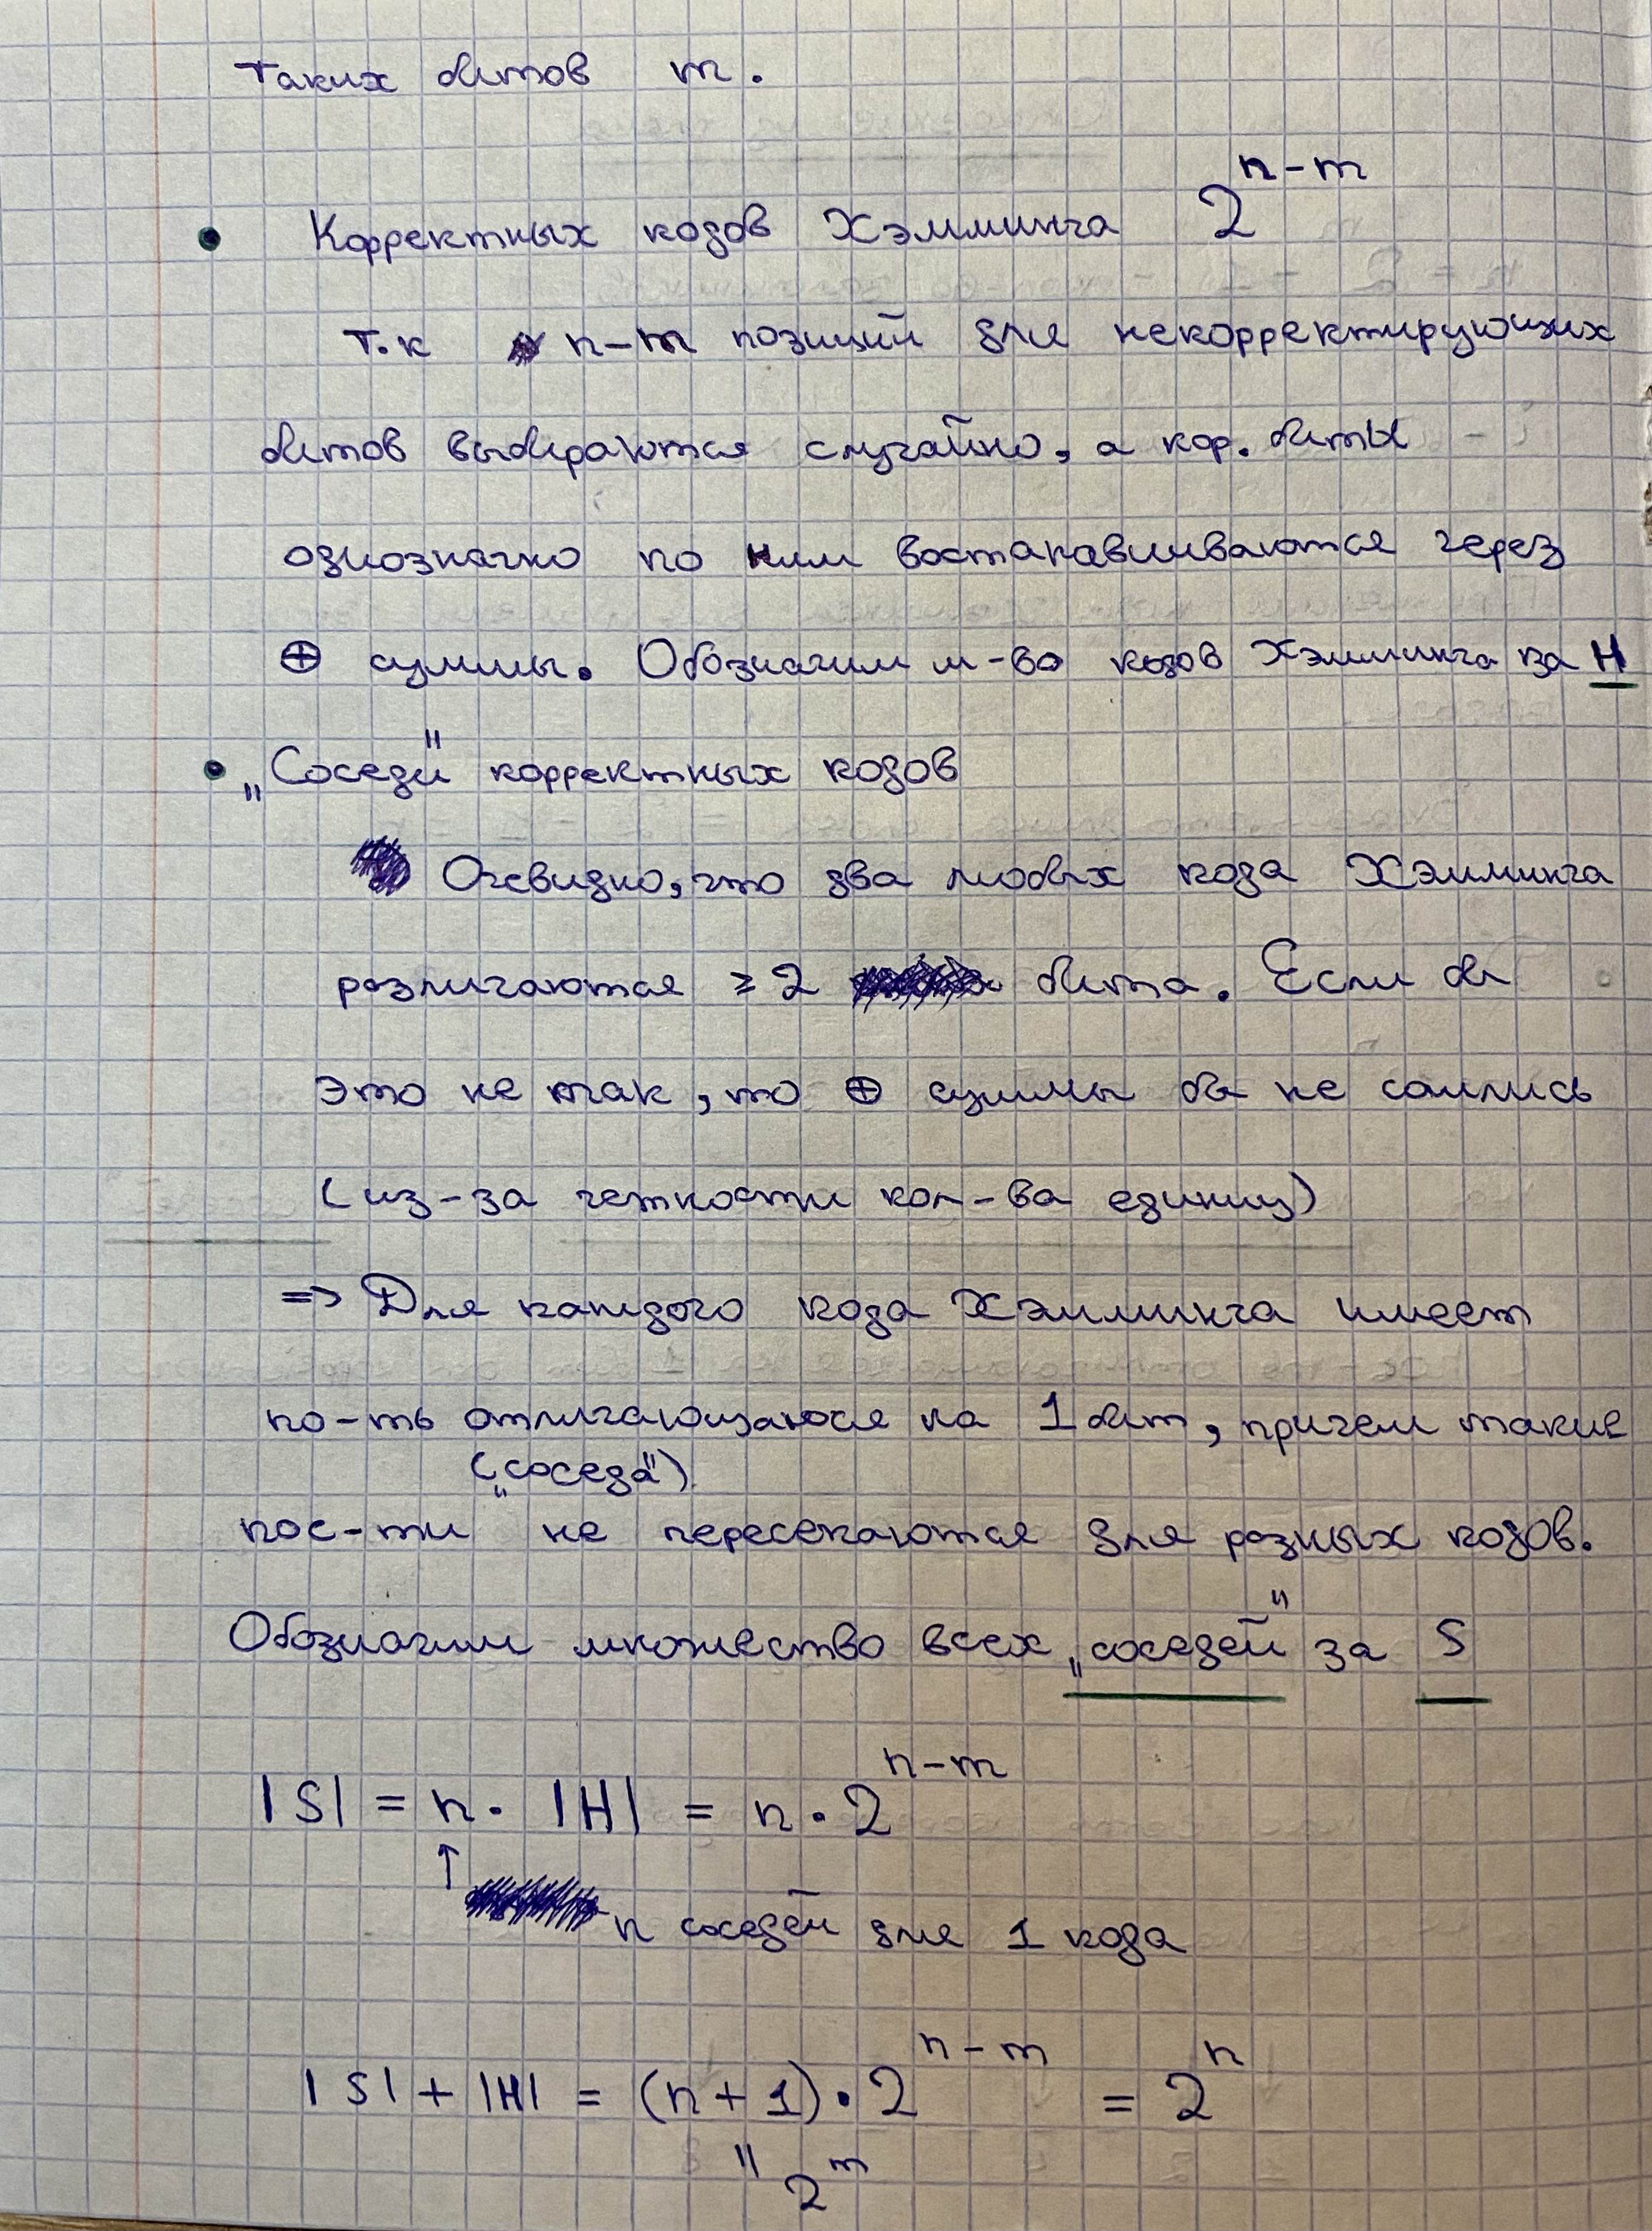 Таких битов m.
• Корректных кодов Хэмминга 2^{n-m}
т.к n-m позиций для некорректирующих
битов выбираются случайно, а кор. биты
однозначно по ним востанавливаются через
⊕ суммы. Обозначим м-во кодов Хэмминга за H
• „Соседи" корректных кодов
Очевидно, что два любых кода Хэмминга
различаются ≥ 2 бита. Если бы
это не так, то ⊕ суммы бы не сошлись
(из-за четности кол-ва единиц)
=> Для каждого кода Хэмминга имеет
по-ть отличающаюся на 1 бит, причем такие
(„соседа")
пос-ти не пересекаются для разных кодов.
Обозначим множество всех „соседей" за S
|S| = n · |H| = n · 2^{n-m}
↑
n соседей для 1 кода
|S| + |H| = (n+1) · 2^{n-m} = 2^n
" 2^m